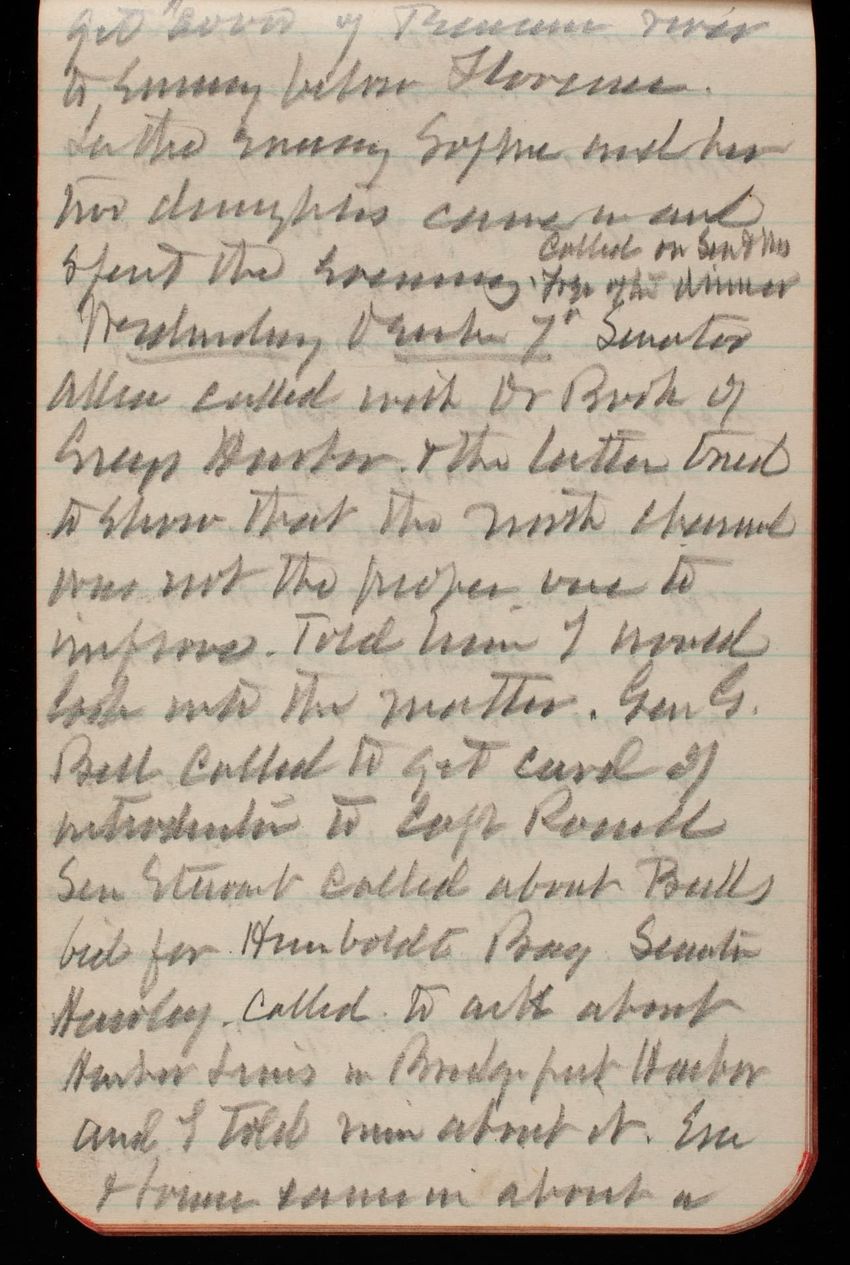 get Board of Tennessee river
to Survey below Florence.
In the evening Sophie and her
two daughters came in and
spent the evening. Called on Sen & Mrs
Frye after dinner
Wednesday December 7" Senator
Allen called with Dr Bush of
Grays Harbor. & the latter tried
to show that the north channel
was not the proper one to
improve. Told him I would
look into the matter. Gen G.
Bell called to get card of
introduction to Capt Powell
Sen Stewart called about Bulls
bid for Humboldt Bay Senator
Hawley. called. to ask about
Harbor Lines in Bridgeport Harbor
and I told him about it.
& came in about a